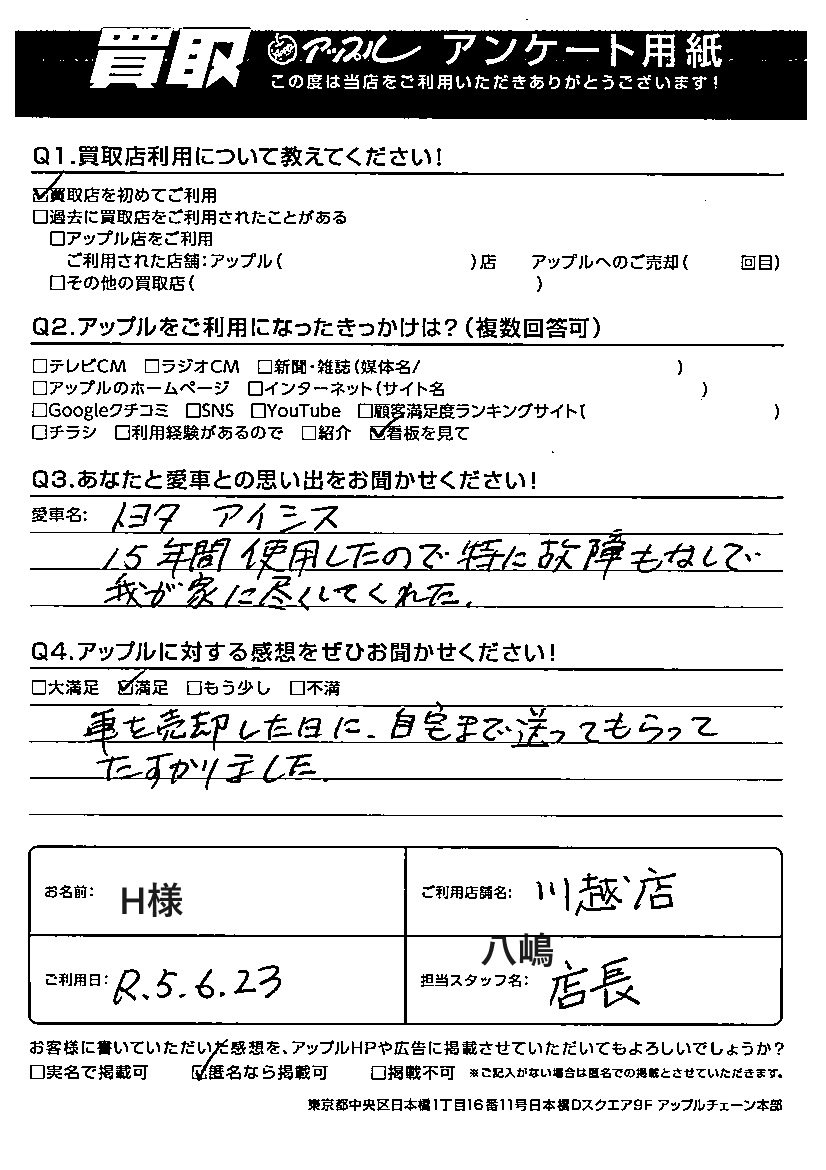 買取 アップル アンケート用紙
この度は当店をご利用いただきありがとうございます!
Q1.買取店利用について教えてください!
☑買取店を初めてご利用
□過去に買取店をご利用されたことがある
□アップル店をご利用
ご利用された店舗:アップル( )店 アップルへのご売却( 回目)
□その他の買取店( )
Q2.アップルをご利用になったきっかけは?(複数回答可)
□テレビCM □ラジオCM □新聞・雑誌(媒体名/ )
□アップルのホームページ □インターネット(サイト名 )
□Googleクチコミ □SNS □YouTube □顧客満足度ランキングサイト( )
□チラシ □利用経験があるので □紹介 ☑看板を見て
Q3.あなたと愛車との思い出をお聞かせください!
愛車名: トヨタ アイシス
15年間使用したので特に故障もなしで
我が家に尽くしてくれた.
Q4.アップルに対する感想をぜひお聞かせください!
□大満足 ☑満足 □もう少し □不満
車を売却した日に、自宅まで送ってもらって
たすかりました.
お名前: H様 ご利用店舗名: 川越店
ご利用日: R.5.6.23 担当スタッフ名: 八嶋 店長
お客様に書いていただいた感想を、アップルHPや広告に掲載させていただいてもよろしいでしょうか?
□実名で掲載可 ☑匿名なら掲載可 □掲載不可 ※ご記入がない場合は匿名での掲載とさせていただきます。
東京都中央区日本橋1丁目16番11号日本橋Dスクエア9F アップルチェーン本部